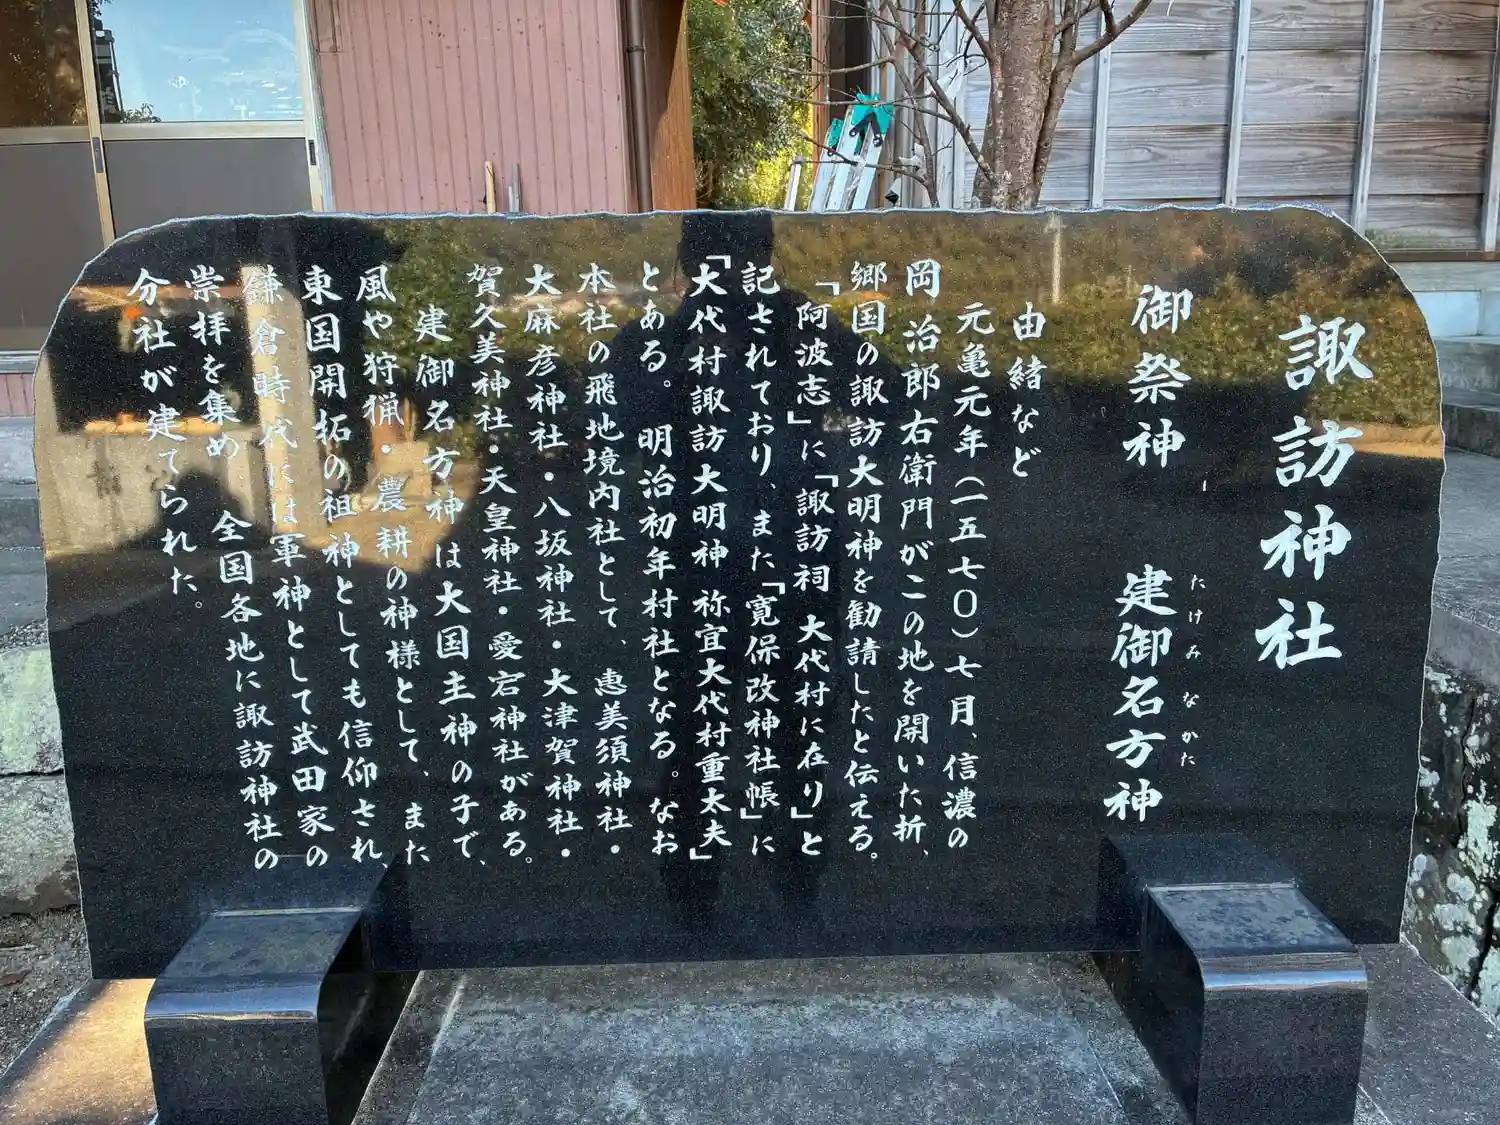 諏訪神社
御祭神 建御名方神
たけみ なかた
由緒など
元亀元年(一五七〇)七月、信濃の
岡 治郎右衛門がこの地を開いた折、
郷国の諏訪大明神を勧請したと伝える。
「阿波志」に「諏訪祠 大代村に在り」と
記されており、また「寛保改神社帳」に
「大代村諏訪大明神 祢宜大代村重太夫」
とある。明治初年村社となる。なお
本社の飛地境内社として、恵美須神社・
大麻彦神社・八坂神社・大津賀神社・
賀久美神社・天皇神社・愛宕神社がある。
建御名方神は大国主神の子で、
風や狩猟・農耕の神様として、また
東国開拓の祖神としても信仰され、
鎌倉時代には軍神として武田家の
崇拝を集め、全国各地に諏訪神社の
分社が建てられた。